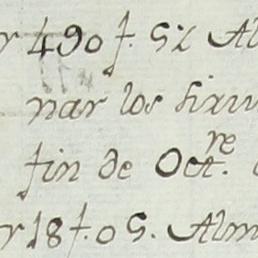 r 490 f. 52 Al
nar los
fin de Oct.re
r 18 f. 05. Alm